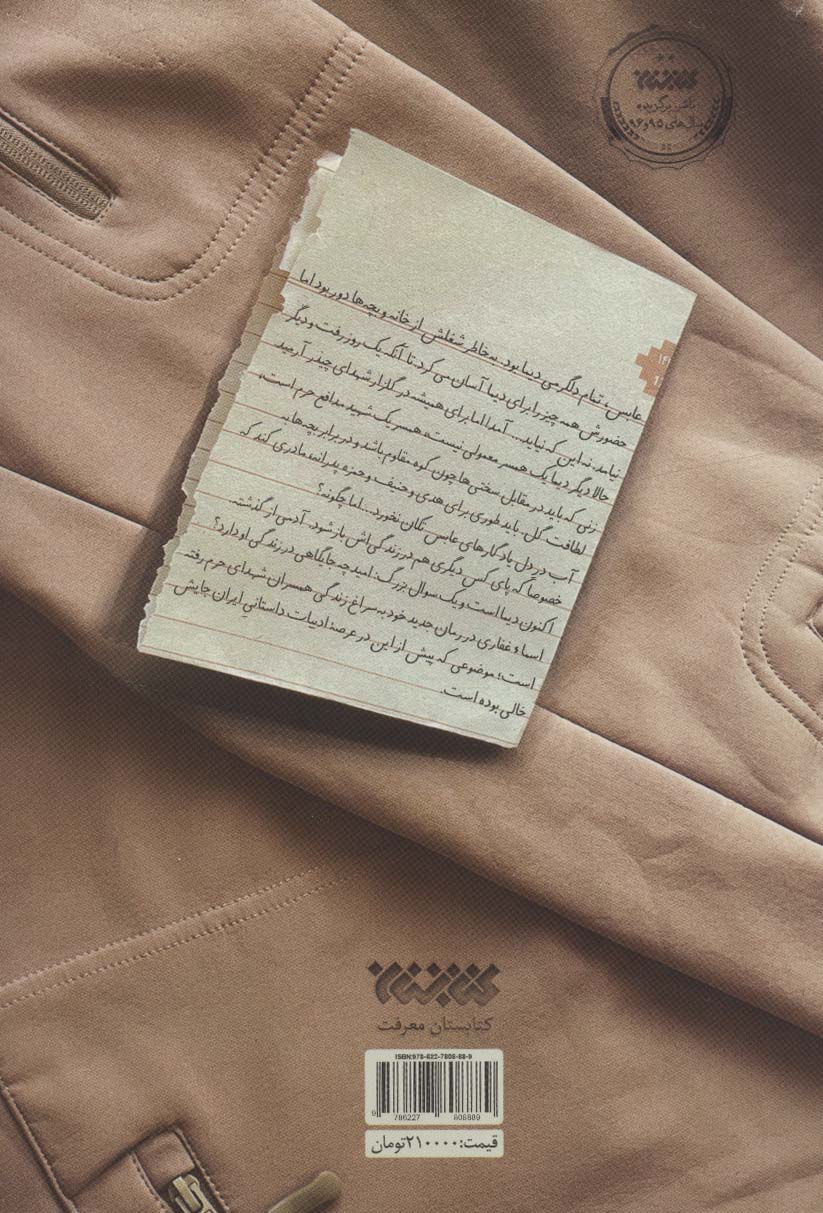 کتابستان
ناشر برگزیده
سال‌های ۹۵ و ۹۶
عابس، تمام دلگرمی دیبا بود. به خاطر شغلش از خانه و بچه‌ها دور بود اما
حضورش همه چیز را برای دیبا آسان می‌کرد تا آنکه یک روز رفت و دیگر
نیامد. نه این که نیاید... آمد اما برای همیشه در گلزار شهدای چیذر آرمید.
حالا دیگر دیبا یک همسر معمولی نیست، همسر یک شهید مدافع حرم است،
زنی که باید در مقابل سختی‌ها چون کوه مقاوم باشد و در برابر بچه‌ها، به
لطافت گل. باید طوری برای هدی و حنیف و حمزه پدرانه، مادری کند که
آب در دل یادگارهای عابس تکان نخورد... اما چگونه؟
خصوصاً که پای کس دیگری هم در زندگی‌اش باز شود. آدمی از گذشته.
اکنون دیبا است و یک سوال بزرگ: امید چه جایگاهی در زندگی او دارد؟
اسماء غفاری در رمان جدید خود به سراغ زندگی همسران شهدای حرم رفته
است؛ موضوعی که پیش از این در عرصهٔ ادبیات داستانیِ ایران جایش
خالی بوده است.
کتابستان
کتابستان معرفت
ISBN:978-622-7808-88-9
9 786227 808889
قیمت: ۲۱۰۰۰۰ تومان